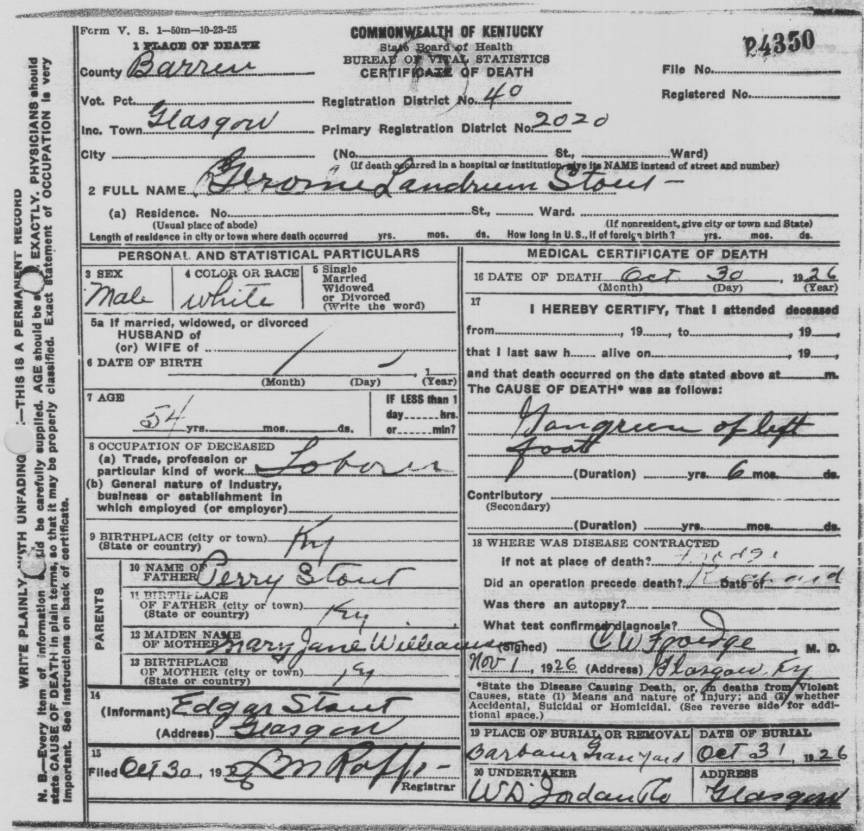 Form V. S. 1—50m—10-23-25
COMMONWEALTH OF KENTUCKY
State Board of Health
BUREAU OF VITAL STATISTICS
CERTIFICATE OF DEATH
24350
1 PLACE OF DEATH
County Barren
File No.
Vot. Pct.
Registration District No. 40
Registered No.
Inc. Town Glasgow
Primary Registration District No. 2020
City (No. St., Ward)
(If death occurred in a hospital or institution, give its NAME instead of street and number)
2 FULL NAME Gerome Landrum Stout
(a) Residence. No. St., Ward.
(Usual place of abode) (If nonresident, give city or town and State)
Length of residence in city or town where death occurred yrs. mos. ds. How long in U.S., if of foreign birth? yrs. mos. ds.
PERSONAL AND STATISTICAL PARTICULARS
3 SEX
Male
4 COLOR OR RACE
White
5 Single
Married
Widowed
or Divorced
(Write the word)
5a If married, widowed, or divorced
HUSBAND of
(or) WIFE of
6 DATE OF BIRTH , 1
(Month) (Day) (Year)
7 AGE
54 yrs. mos. ds.
IF LESS than 1
day hrs.
or min?
8 OCCUPATION OF DECEASED
(a) Trade, profession or
particular kind of work Laborer
(b) General nature of industry,
business or establishment in
which employed (or employer)
9 BIRTHPLACE (city or town) Ky
(State or country)
PARENTS
10 NAME OF
FATHER Perry Stout
11 BIRTHPLACE
OF FATHER (city or town) Ky
(State or country)
12 MAIDEN NAME
OF MOTHER Mary Jane Williams
13 BIRTHPLACE
OF MOTHER (city or town) Ky
(State or country)
14
(Informant) Edgar Stout
(Address) Glasgow
15
Filed Oct 30, 1926
Registrar
MEDICAL CERTIFICATE OF DEATH
16 DATE OF DEATH Oct 30, 1926
(Month) (Day) (Year)
17
I HEREBY CERTIFY, That I attended deceased
from , 19 , to , 19
that I last saw h alive on , 19 ,
and that death occurred on the date stated above at m.
The CAUSE OF DEATH* was as follows:
Gangreen of left
foot
(Duration) yrs. 6 mos. ds.
Contributory
(Secondary)
(Duration) yrs. mos. ds.
18 WHERE WAS DISEASE CONTRACTED
if not at place of death?
Did an operation precede death? Date of
Was there an autopsy?
What test confirmed diagnosis?
(Signed) C W Froedge, M. D.
Nov 1, 1926 (Address) Glasgow, Ky
*State the Disease Causing Death, or, in deaths from Violent
Causes, state (1) Means and nature of Injury; and (2) whether
Accidental, Suicidal or Homicidal. (See reverse side for addi-
tional space.)
19 PLACE OF BURIAL OR REMOVAL
Barbour Graveyard
DATE OF BURIAL
Oct 31, 1926
20 UNDERTAKER
W D Jordan Co
ADDRESS
Glasgow
WRITE PLAINLY, WITH UNFADING —THIS IS A PERMANENT RECORD
N. B.—Every item of information be carefully supplied. AGE should be EXACTLY. PHYSICIANS should
state CAUSE OF DEATH in plain terms, so that it may be properly classified. Exact statement of OCCUPATION is very
important. See instructions on back of certificate.